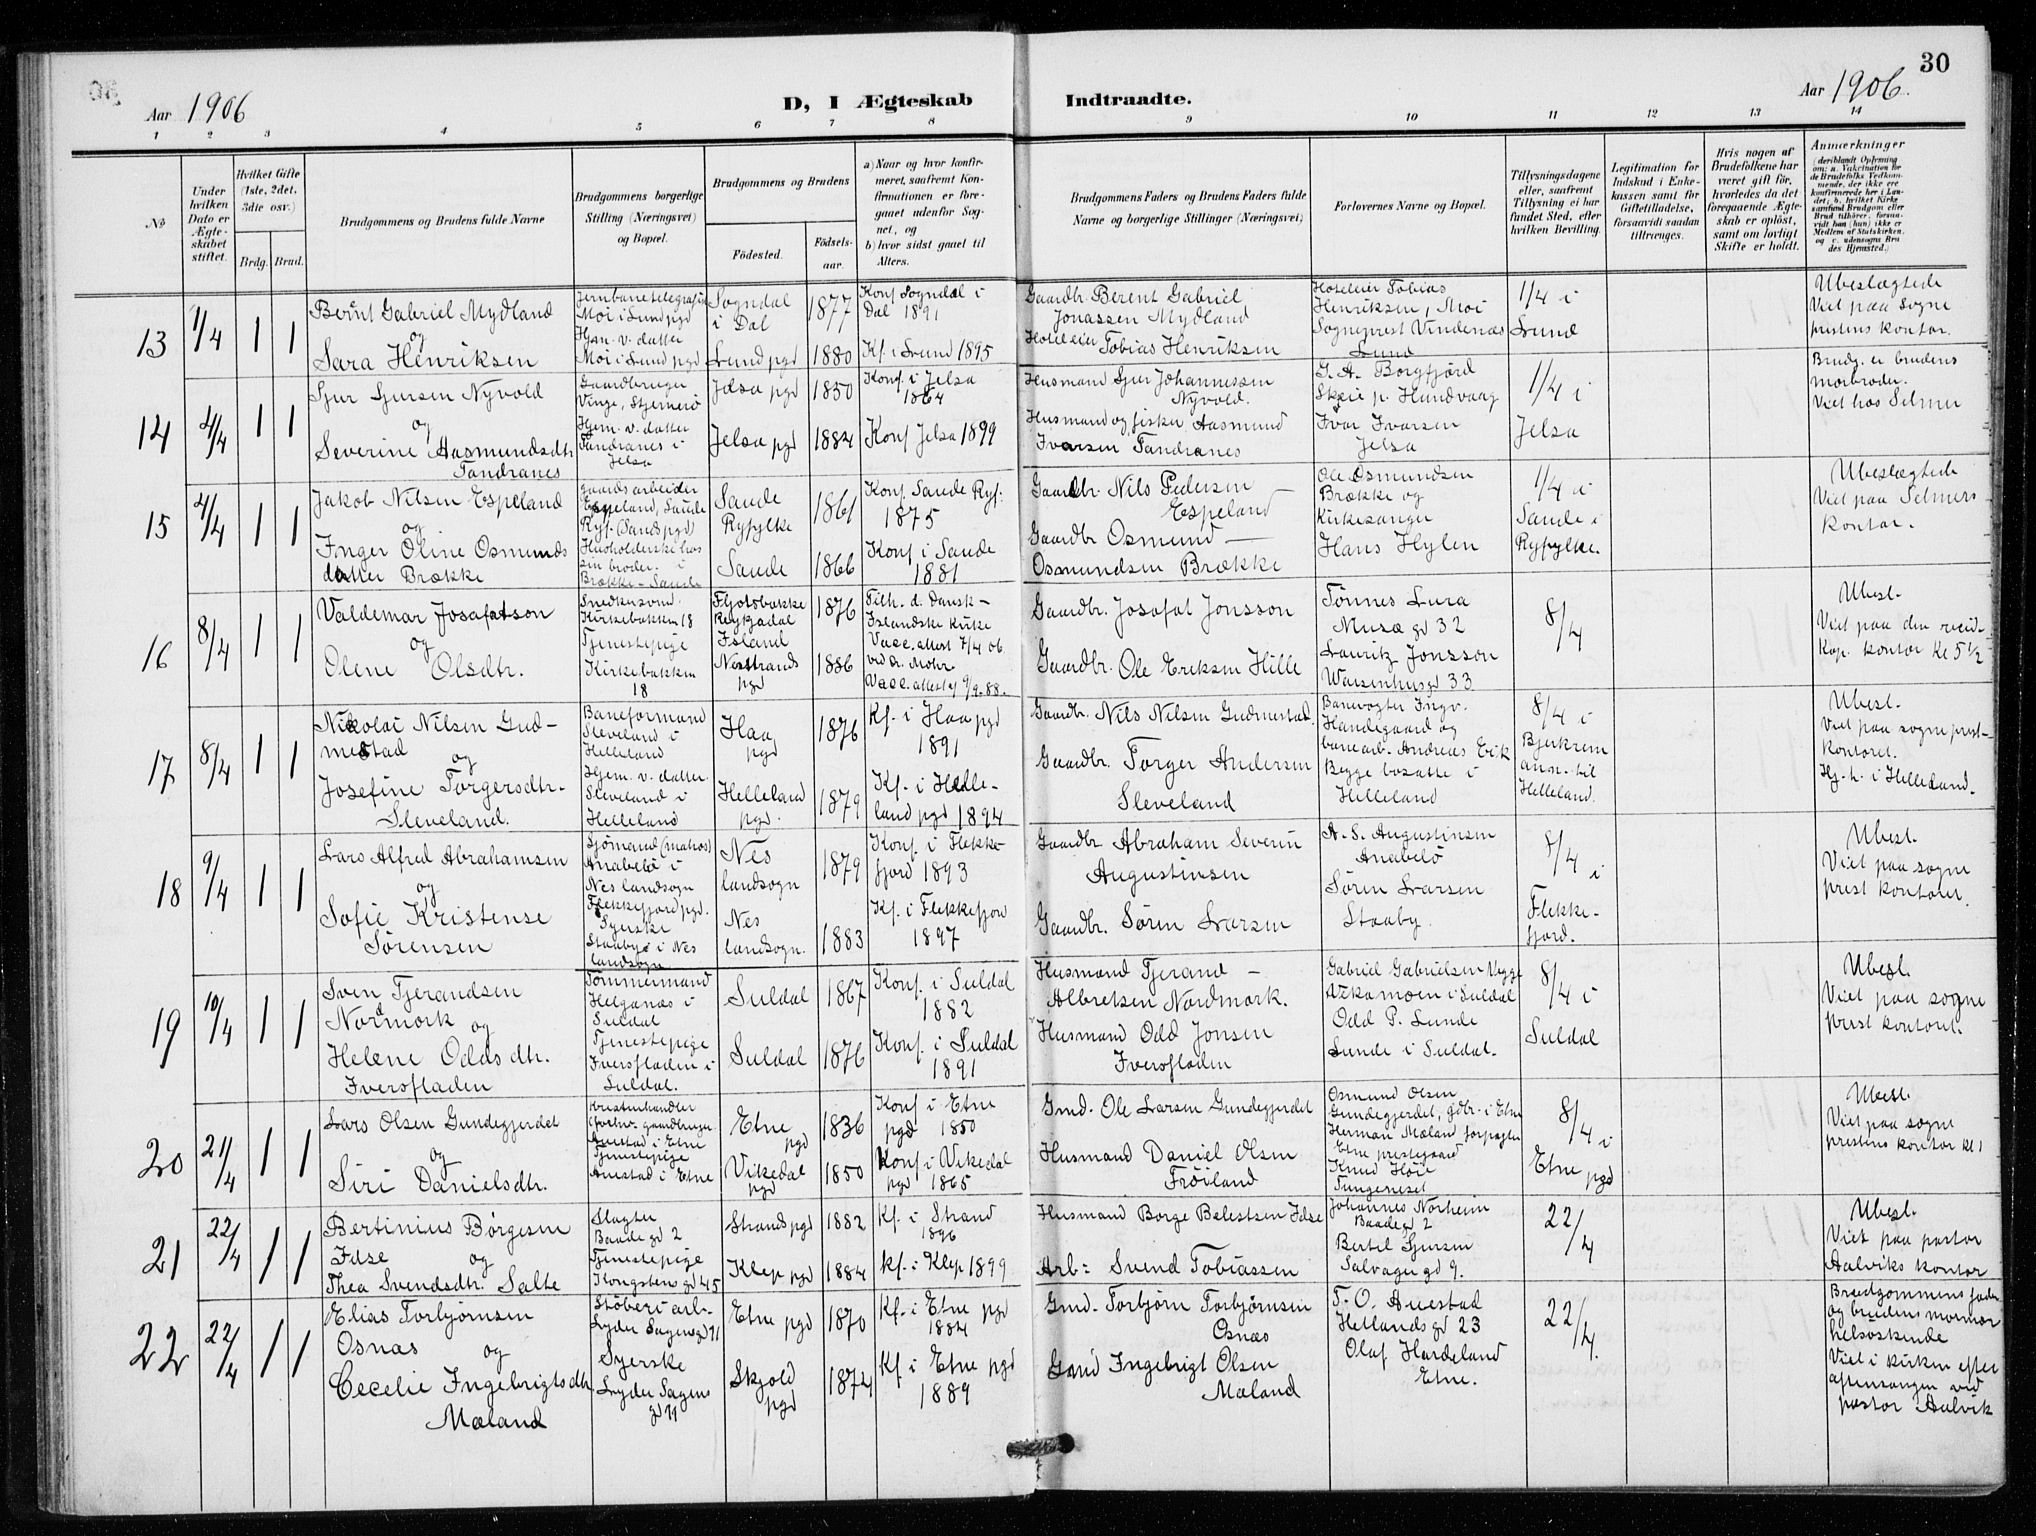 30
Aar 1906
D, I Ægteskab Indtraadte.
Aar 1906.
1 2 3 4 5 6 7 8 9 10 11 12 13 14
No
Under hvilken Dato er Ægteskabet stiftet.
Hvilket Gifte (1ste, 2det, 3die osv.)
Brdg. Brud.
Brudgommens og Brudens fulde Navne
Brudgommens borgerlige Stilling (Næringsvei) og Bopæl.
Brudgommens og Brudens
Fødested.
Fødselsaar.
a) Naar og hvor konfirmeret, saafremt Konfirmationen er foregaaet udenfor Sognet, og
b) hvor sidst gaaet til Alters.
Brudgommens Faders og Brudens Faders fulde Navne og borgerlige Stillinger (Næringsvei)
Forlovernes Navne og Bopæl.
Tillysningsdagene eller, saafremt Tillysning ei har fundet Sted, efter hvilken Bevilling.
Legitimation for Indskud i Enkekassen samt for Giftetilladelse, forsaavidt saadan tiltrænges.
Hvis nogen af Brudefolkene har været gift før, hvorledes da det foregaaende Ægteskab er opløst, samt om lovligt Skifte er holdt.
Anmærkninger
(deriblandt Oplysning om: a. Vakcination for de Brudefolks Vedkommende, der ikke ere konfirmerede her i Landet; b. hvilket Kirkesamfund Brudgom eller Brud tilhører, forsaavidt han (hun) ikke er Medlem af Statskirken, og c. udensogns Brudes Hjemsted.)
13 1/4 1 1
Bernt Gabriel Mydland
og
Sara Henriksen
Jernbanetelegrafist
Moi i Lund pgd
Hjm. v. datter
Moi i Lund pgd
Sogndal i Dal 1877
Lund pgd 1880
Konf Sogndal i Dal 1891
Kf. i Lund 1895
Gaardbr. Berent Gabriel
Jonassen Mydland
Hoteleier Tobias Henriksen
Hoteleier Tobias
Henriksen, Moi
Sogneprest Vindenæs
Lund
1/4 i
Lund
Ubeslægtede
Viet paa Sogne
prestens kontor.
14 2/4 1 1
Sjur Sjursen Nyvold
og
Severine Aasmundsdtr
Tandranes
Gaardbruger
Vinge, Stjernerö
Hjem. v. datter
Tandranes i
Jelsa
Jelsa pgd 1850
Jelsa pgd 1884
Konf. i Jelsa 1864
Konf Jelsa 1899
Husmand Sjur Johannessen
Nyvold.
Husmand og fisker, Aasmund
Ivarsen Tandranes
G. A. Borgfjörd
Skeie p. Hundvaag
Ivar Ivarsen
Jelsa
1/4 i
Jelsa
Brudg. er brudens
morbroder.
Viet hos Selmer
15 2/4 1 1
Jakob Nilsen Espeland
og
Inger Oline Osmunds
datter Brække
Gaardsarbeider
Espeland, Saude
Ryf. (Sand pgd)
Husholderske hos
sin broder. i
Brække - Saude
Saude
Ryfylke 1861
Saude 1866
Konf. Saude Ryf.
1875
Konf i Saude
1881
Gaardbr. Nils Pedersen
Espeland
Gaardbr Osmund —
Osmundsen Brække
Ole Osmundsen
Brække og
Kirkesanger
Hans Hylen
1/4 i
Saude i
Ryfylke.
Ubeslægtede
Viet paa Selmers
kontor.
16 8/4 1 1
Valdemar Josafatson
og
Olene Olsdtr.
Snedkersvend
Kirkebakken 18
Tjenestepige
Kirkebakken
18
Fljotsbakke
Reykjadal
Island 1876
Nerstrands
pgd 1886
Tilh. d. Dansk-
Islandske kirke
Vacc. attest 7/4 06
ved d. Mohr.
Vacc. attest af 9/9. 88.
Gaardbr. Josafat Jonsson
Gaardbr. Ole Eriksen Hille
Tönnes Lura
Musæ gd 32
Lauritz Jonsson
Waisenhusgd 33
8/4
Ubesl.
Viet paa den resid-
Kap. kontor Kl 5 1/2
17 8/4 1 1
Nikolai Nilsen Gud-
mestad
og
Josefine Torgersdtr.
Sleveland.
Baneformand
Sleveland i
Helleland
Hjem. v. datter.
Sleveland i
Helleland
Haa
pgd 1876
Helleland
pgd. 1879
Kf. i Haa pgd
1891
Kf. i Helle-
land pgd 1894
Gaardbr. Nils Nilsen Gudmestad.
Gaardbr. Torger Andersen
Sleveland
Banevogter Ingv.
Handegaard og
banearb. Andreas Eik
Begge bosatte i
Helleland
8/4 i
Bjerkrem
ann. til
Helleland.
Ubesl.
Viet paa sogneprest-
kontoret.
Hj. h. i Helleland.
18 9/4 1 1
Lars Alfred Abrahamsen
og
Sofie Kristense
Sörensen
Sjömand (matros)
Anabelö i
Nes landsogn
Flekkefjord pgd.
Syerske
Staaby i Nes
landsogn
Nes
landsogn 1879
Nes
landsogn. 1883
Konf. i Flekke-
fjord 1893
Kf. i Flekkefjord
1897
Gaardbr Abraham Severin
Augustinsen
Gaardbr. Sören Larsen
A. S. Augustinsen
Anabelö
Sören Larsen
Staaby.
8/4 i
Flekke-
fjord.
Ubesl.
Viet paa sogne
prest kontoret.
19 10/4 1 1
Sven Tjerandsen
Nordmork og
Helene Oddsdtr.
Iversfladen
Tömmermand
Helganæs i
Suldal
Tjenestepige
Iversfladen i
Suldal.
Suldal 1867
Suldal 1876
Konf. i Suldal
1882
Konf. i Suldal
1891
Husmand Tjerand —
Albretsen Nordmork.
Husmand Odd Jonsen
Iversfladen
Gabriel Gabrielsen Vegge
i Suldal
Odd P. Lunde
Lunde i Suldal.
8/4 i
Suldal
Ubesl.
Viet paa sogne
prest kontoret.
20 21/4 1 1
Lars Olsen Gundegjerdet
og
Siri Danielsdtr.
Kreaturhandler
(forhv. gaardbruger
Auestad i Etne
Tjenestepige
Auestad i Etne
Etne
pgd 1836
Vikedal
pgd 1850
Konf i Etne
pgd 1850
Konf i Vikedal
pgd 1865
Gmd. Ole Larsen Gundegjerdet
Husmand Daniel Olsen
Fröiland
Osmund Olsen
Gundegjerdet, gdbr. i Etne
Herman Mæland forpagter
Etne prestegaard
Knud Höie
Tungeneset
8/4 i
Etne pgd
Ubesl.
Viet paa sogne
prestens kontor kl 1
21 22/4 1 1
Bertinius Börgesen
Idse og
Thea Svendsdtr. Salte
Slagter
Baade gd 2
Tjenestepige
Kongsten gd 45
Strand pgd 1882
Klep pgd 1884
Kf. i Strand
1896
kf. i Klep 1899
Husmand Börge Balestsen Idse
Arb: Svend Tobiassen
Johannes Norheim
Baade gd 2
Bertil Sjursen
Salvager gd 9.
22/4
Ubesl.
Viet paa pastor
Aalviks kontor
22 22/4 1 1
Elias Torbjörnsen
Osnæs og
Cecelie Ingebrigtsdtr
Mæland
Stöberi arb.
Lyder Sagens gd 11
Syerske
Lyder Sagens
gd 11
Etne pgd 1870
Skjold
pgd 1874
Kf. i Etne pgd
1884
Kf i Etne pgd
1889
Gmd. Torbjörn Torbjörnsen
Osnæs
Gmd Ingebrigt Olsen
Mæland
T. O. Auestad
Hetlands gd 23
Olaf Hardeland
Etne.
22/4.
Brudgommens fader
og brudens mormor
helsöskende
Viet i kirken efter
aftensangen ved
pastor Aalvik